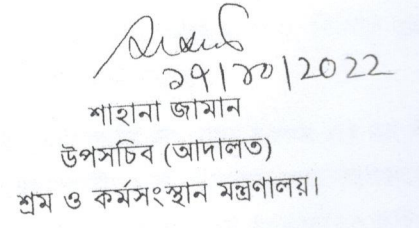 ১৭/১০/2022
শাহানা জামান
উপসচিব (আদালত)
শ্রম ও কর্মসংস্থান মন্ত্রণালয়।